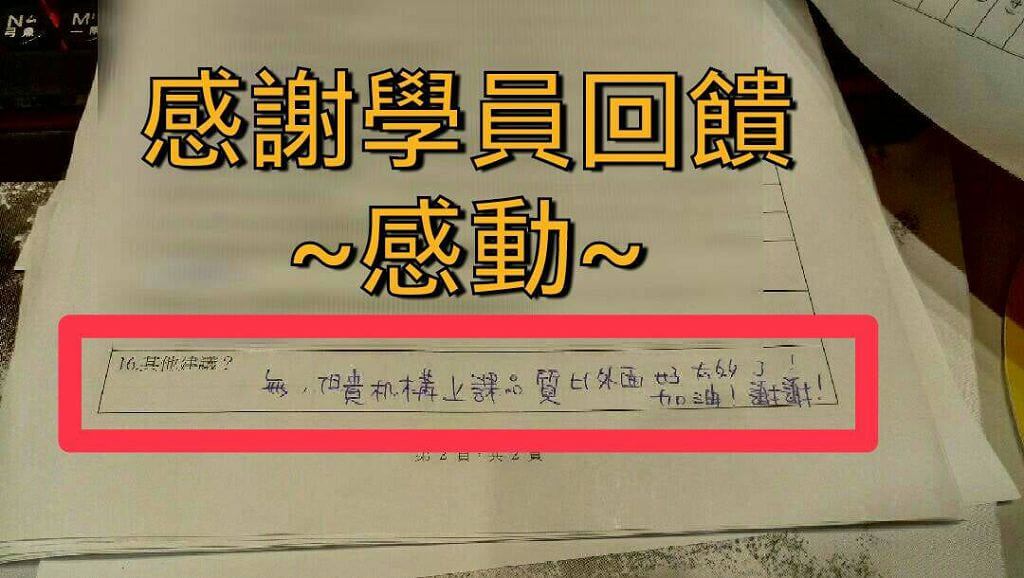 感謝學員回饋
~感動~
16.其他建議？
無，但貴機構上課品質比外面好太多了！
加油！謝謝！
第 2 頁，共 2 頁